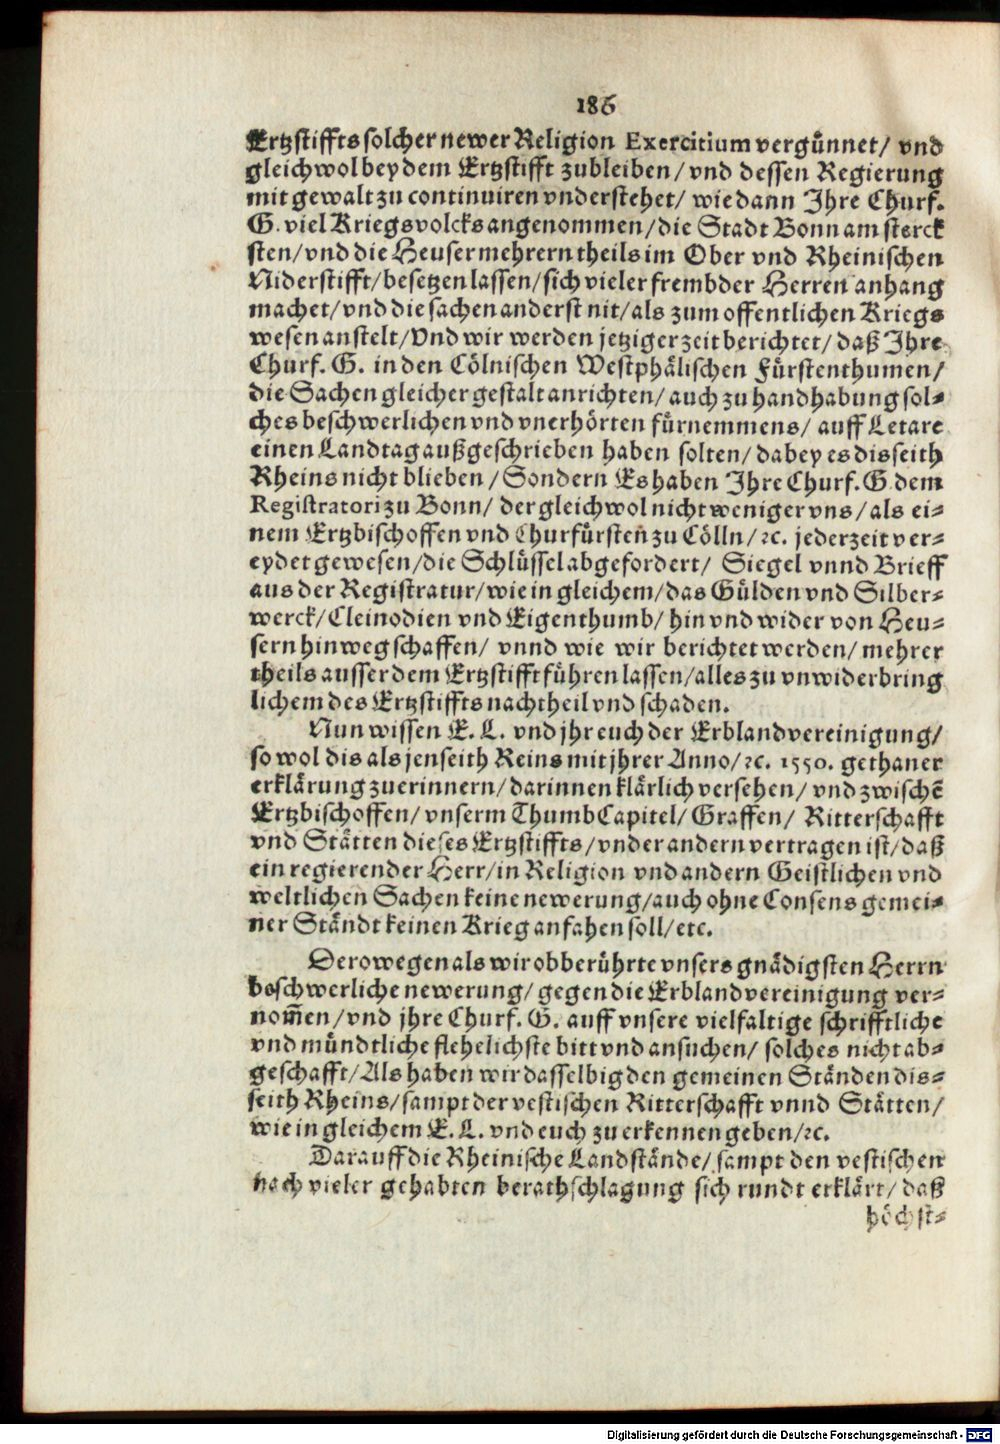 186
Ertzstiffts solcher newer Religion Exercitium vergünnet/ vnd
gleichwol bey dem Ertzstifft zubleiben/ vnd dessen Regierung
mit gewalt zu continuiren vnderstehet/ wie dann Ihre Churf.
G. viel Kriegsvolcks angenommen/ die Stadt Bonn am sterck
sten/ vnd die Heuser mehrern theils im Ober vnd Rheinischen
Niderstifft/ besetzen lassen/ sich vieler frembder Herren anhang
machet/ vnd die sachen anderst nit/ als zum offentlichen Kriegs
wesen anstelt/ Vnd wir werden jetziger zeit berichtet/ daß Ihre
Churf. G. in den Cölnischen Westphälischen Fürstenthumen/
die Sachen gleicher gestalt anrichten/ auch zu handhabung sol-
ches beschwerlichen vnd vnerhörten fürnemmens/ auff Letare
einen Landtag außgeschrieben haben solten/ dabey es disseith
Rheins nicht blieben/ Sondern Es haben Ihre Churf. G. dem
Registratori zu Bonn/ der gleichwol nicht weniger vns/ als ei-
nem Ertzbischoffen vnd Churfürsten zu Cölln/ ꝛc. jederzeit ver-
eydet gewesen/ die Schlüssel abgefordert/ Siegel vnnd Brieff
aus der Registratur/ wie in gleichem/ das Gülden vnd Silber-
werck/ Cleinodien vnd Eigenthumb/ hin vnd wider von Heu-
sern hinweg schaffen/ vnnd wie wir berichtet werden/ mehrer
theils ausser dem Ertzstifft führen lassen/ alles zu vnwiderbring
lichem des Ertzstiffts nachtheil vnd schaden.
Nun wissen E. L. vnd jhr euch der Erblandvereinigung/
so wol dis als jenseith Reins mit jhrer Anno/ ꝛc. 1550. gethaner
erklärung zuerinnern/ darinnen klärlich versehen/ vnd zwischē
Ertzbischoffen/ vnserm ThumbCapitel/ Graffen/ Ritterschafft
vnd Stätten dieses Ertzstiffts/ vnder andern vertragen ist/ daß
ein regierender Herr/ in Religion vnd andern Geistlichen vnd
weltlichen Sachen keine newerung/ auch ohne Consens gemei-
ner Ständt keinen Krieg anfahen soll/ etc.
Derowegen als wir obberührte vnsers gnädigsten Herrn
beschwerliche newerung/ gegen die Erblandvereinigung ver-
nom̄en/ vnd jhre Churf. G. auff vnsere vielfaltige schrifftliche
vnd mündtliche flehelichste bitt vnd ansuchen/ solches nicht ab-
geschafft/ Als haben wir dasselbig den gemeinen Ständen dis-
seith Rheins/ sampt der vestischen Ritterschafft vnnd Stätten/
wie in gleichem E. L. vnd euch zu erkennen geben/ ꝛc.
Darauff die Rheinische Landstände/ sampt den vestischen
nach vieler gehabten berathschlagung sich rundt erklärt/ daß
höchst-
Digitalisierung gefördert durch die Deutsche Forschungsgemeinschaft - DFG